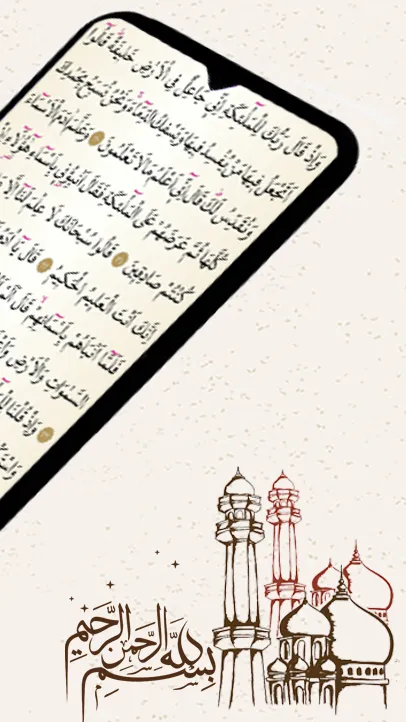 وَاِذْ قَالَ رَبُّكَ لِلْمَلٰٓئِكَةِ اِنّ۪ي جَاعِلٌ فِي الْاَرْضِ خَل۪يفَةًۜ قَالُٓوا
اَتَجْعَلُ ف۪يهَا مَنْ يُفْسِدُ ف۪يهَا وَيَسْفِكُ الدِّمَٓاءَۚ وَنَحْنُ نُسَبِّحُ بِحَمْدِكَ
وَنُقَدِّسُ لَكَۜ قَالَ اِنّ۪ٓي اَعْلَمُ مَا لَا تَعْلَمُونَ وَعَلَّمَ اٰدَمَ الْاَسْمَٓاءَ
كُلَّهَا ثُمَّ عَرَضَهُمْ عَلَى الْمَلٰٓئِكَةِ فَقَالَ اَنْبِؤُ۫ن۪ي بِاَسْمَٓاءِ هٰٓؤُ۬لَٓاءِ
كُنْتُمْ صَادِق۪ينَ قَالُوا سُبْحَانَكَ لَا عِلْمَ لَنَٓا اِلَّا
اِنَّكَ اَنْتَ الْعَل۪يمُ الْحَك۪يمُ قَالَ يَٓا اٰدَمُ
فَلَمَّٓا اَنْبَاَهُمْ بِاَسْمَٓائِهِمْۙ قَالَ
السَّمٰوَاتِ وَالْاَرْضِۙ
وَاِذْ قُلْنَا
بسم الله الرحمن الرحيم